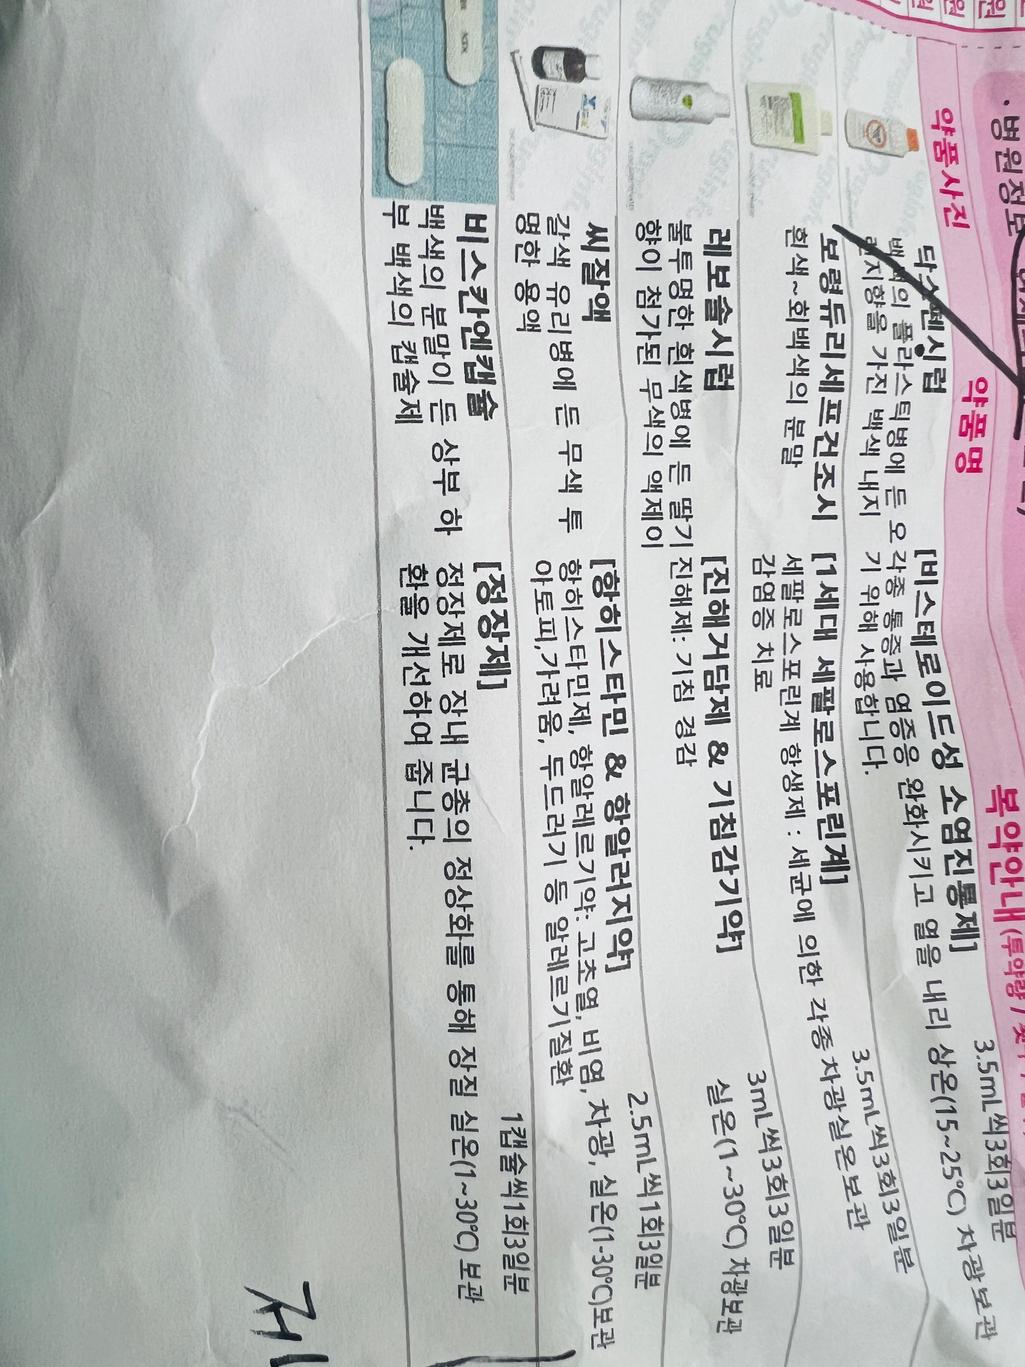 병원정보
약품사진 약품명 복약안내 (투약량 /
닥스펜시럽 [비스테로이드성 소염진통제] 3.5mL씩3회3일분
백색의 플라스틱병에 든 오 각종 통증과 염증을 완화시키고 열을 내리 상온(15~25℃) 차광보관
렌지향을 가진 백색 내지 기 위해 사용합니다.
보령듀리세프건조시 [1세대 세팔로스포린계] 3.5mL씩3회3일분
흰색~회백색의 분말 세팔로스포린계 항생제 : 세균에 의한 각종 차광실온보관
감염증 치료
레보솔시럽 [진해거담제 & 기침감기약] 3mL씩3회3일분
불투명한 흰색병에 든 딸기 진해제: 기침 경감 실온(1~30℃) 차광보관
향이 첨가된 무색의 액제이
씨잘액 [항히스타민 & 항알러지약] 2.5mL씩1회3일분
갈색 유리병에 든 무색 투 항히스타민제, 항알레르기약: 고초열, 비염, 차광, 실온(1-30℃)보관
명한 용액 아토피,가려움, 두드러기 등 알레르기질환
비스칸엔캡슐 [정장제] 1캡슐씩1회3일분
백색의 분말이 든 상부 하 정장제로 장내 균총의 정상화를 통해 장질 실온(1~30℃) 보관
부 백색의 캡슐제 환을 개선하여 줍니다.